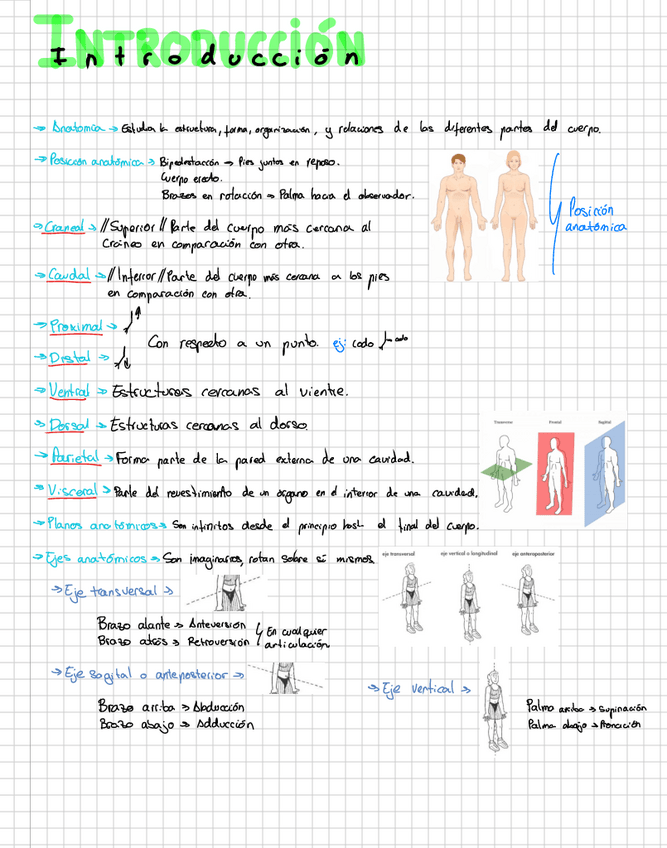 Introducción
Introducción
→ Anatomía → Estudia la estructura, forma, organización, y relaciones de las diferentes partes del cuerpo.
→ Posición anatómica → Bipedestación → Pies juntos en reposo.
Cuerpo erecto.
Brazos en rotación → Palma hacia el observador.
Posición
anatómica
→ Craneal → //Superior// Parte del cuerpo más cercana al
Cráneo en comparación con otra.
→ Caudal → //Inferior// Parte del cuerpo más cercana a los pies
en comparación con otra.
→ Proximal →
Con respecto a un punto. ej: codo
→ Distal →
→ Ventral → Estructuras cercanas al vientre.
→ Dorsal → Estructuras cercanas al dorso.
Transverso Frontal Sagital
→ Parietal → Forma parte de la pared externa de una cavidad.
→ Visceral → Parte del revestimiento de un órgano en el interior de una cavidad.
→ Planos anatómicos → Son infinitos desde el principio hast el final del cuerpo.
→ Ejes anatómicos → Son imaginarios, rotan sobre si mismos.
eje transversal eje vertical o longitudinal eje anteroposterior
→ Eje transversal →
Brazo alante → Anteversión
Brazo atrás → Retroversión
En cualquier
articulación
→ Eje sagital o anteposterior →
Brazo arriba → Abducción
Brazo abajo → Adducción
→ Eje vertical →
Palma arriba → Supinación
Palma abajo → Pronación